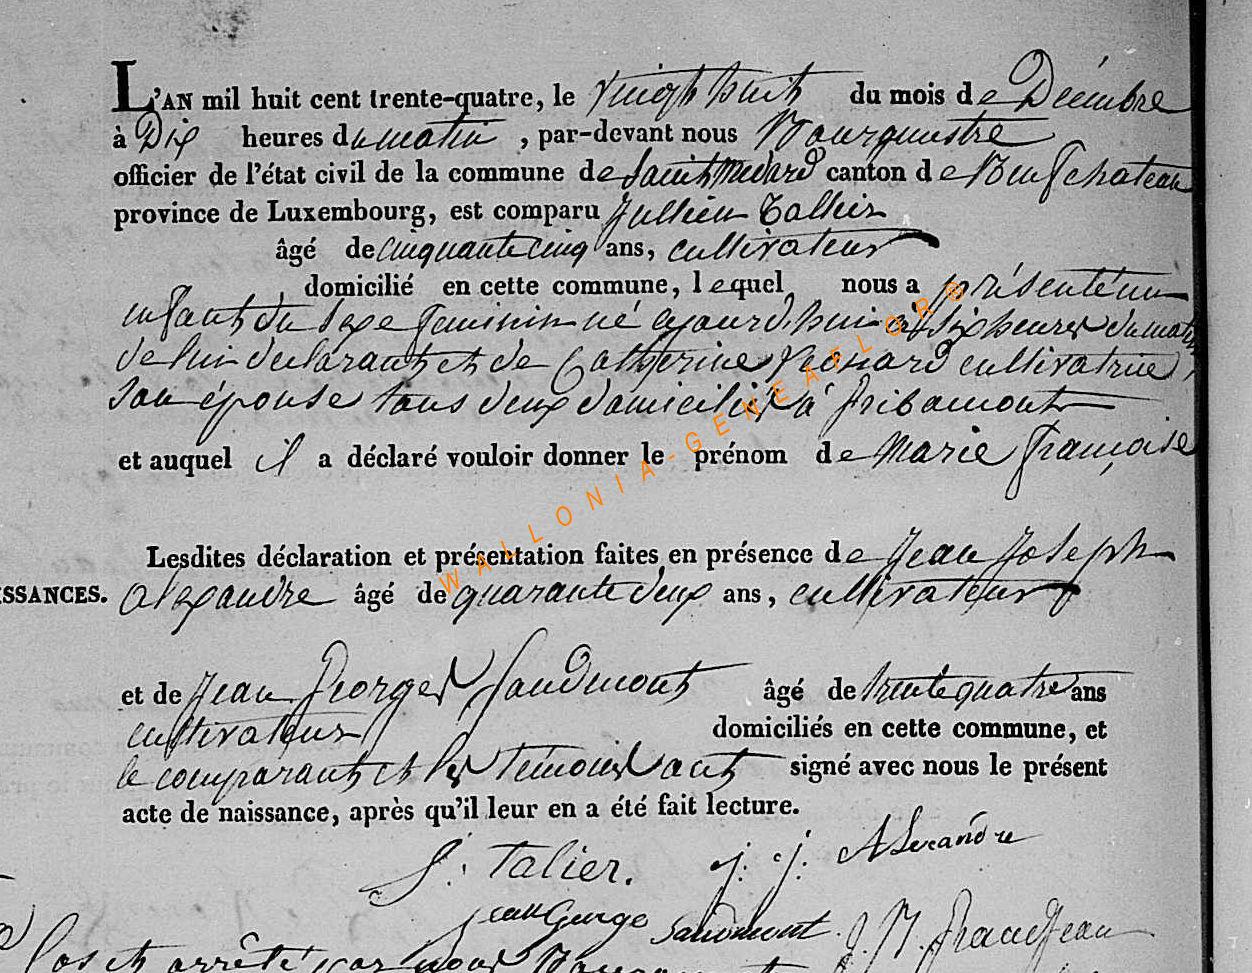 L'AN mil huit cent trente-quatre, le vingt huit du mois de Décembre
à Dix heures du matin, par-devant nous Bourgmestre
officier de l'état civil de la commune de Saint Médard canton de Neufchateau
province de Luxembourg, est comparu Jullien Tallier
âgé de cinquante cinq ans, cultivateur
domicilié en cette commune, lequel nous a présenté un
enfant du sexe feminin né aujourd'hui à six heures du matin
de lui declarant et de Catherine Léonard cultivatrice
son épouse tous deux domiciliés à Fribamont
et auquel il a déclaré vouloir donner le prénom de Marie Françoise
Lesdites déclaration et présentation faites en présence de Jean Joseph
ISSANCES. Alexandre âgé de quarante deux ans, cultivateur
et de Jean Georges Saudmont âgé de trente quatre ans
cultivateur domiciliés en cette commune, et
le comparant et les temoins ont signé avec nous le présent
acte de naissance, après qu'il leur en a été fait lecture.
J. Talier. j. j. Alexandre
jean George Saudmont. J. N. Grandjean
Clos et arrêté par nous
WALLONIA-GENEAFLOR®